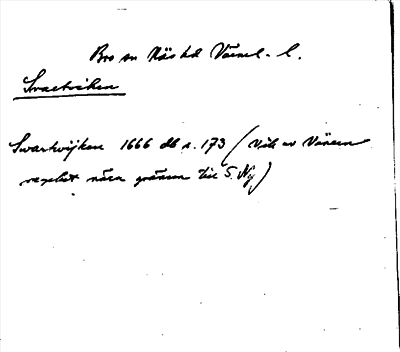 Bro sn Näs hd Värml. l.
Svartviken
Swartwijken 1666 db s. 173 (Vik av Vänern
nära gränsen till S. Ny)